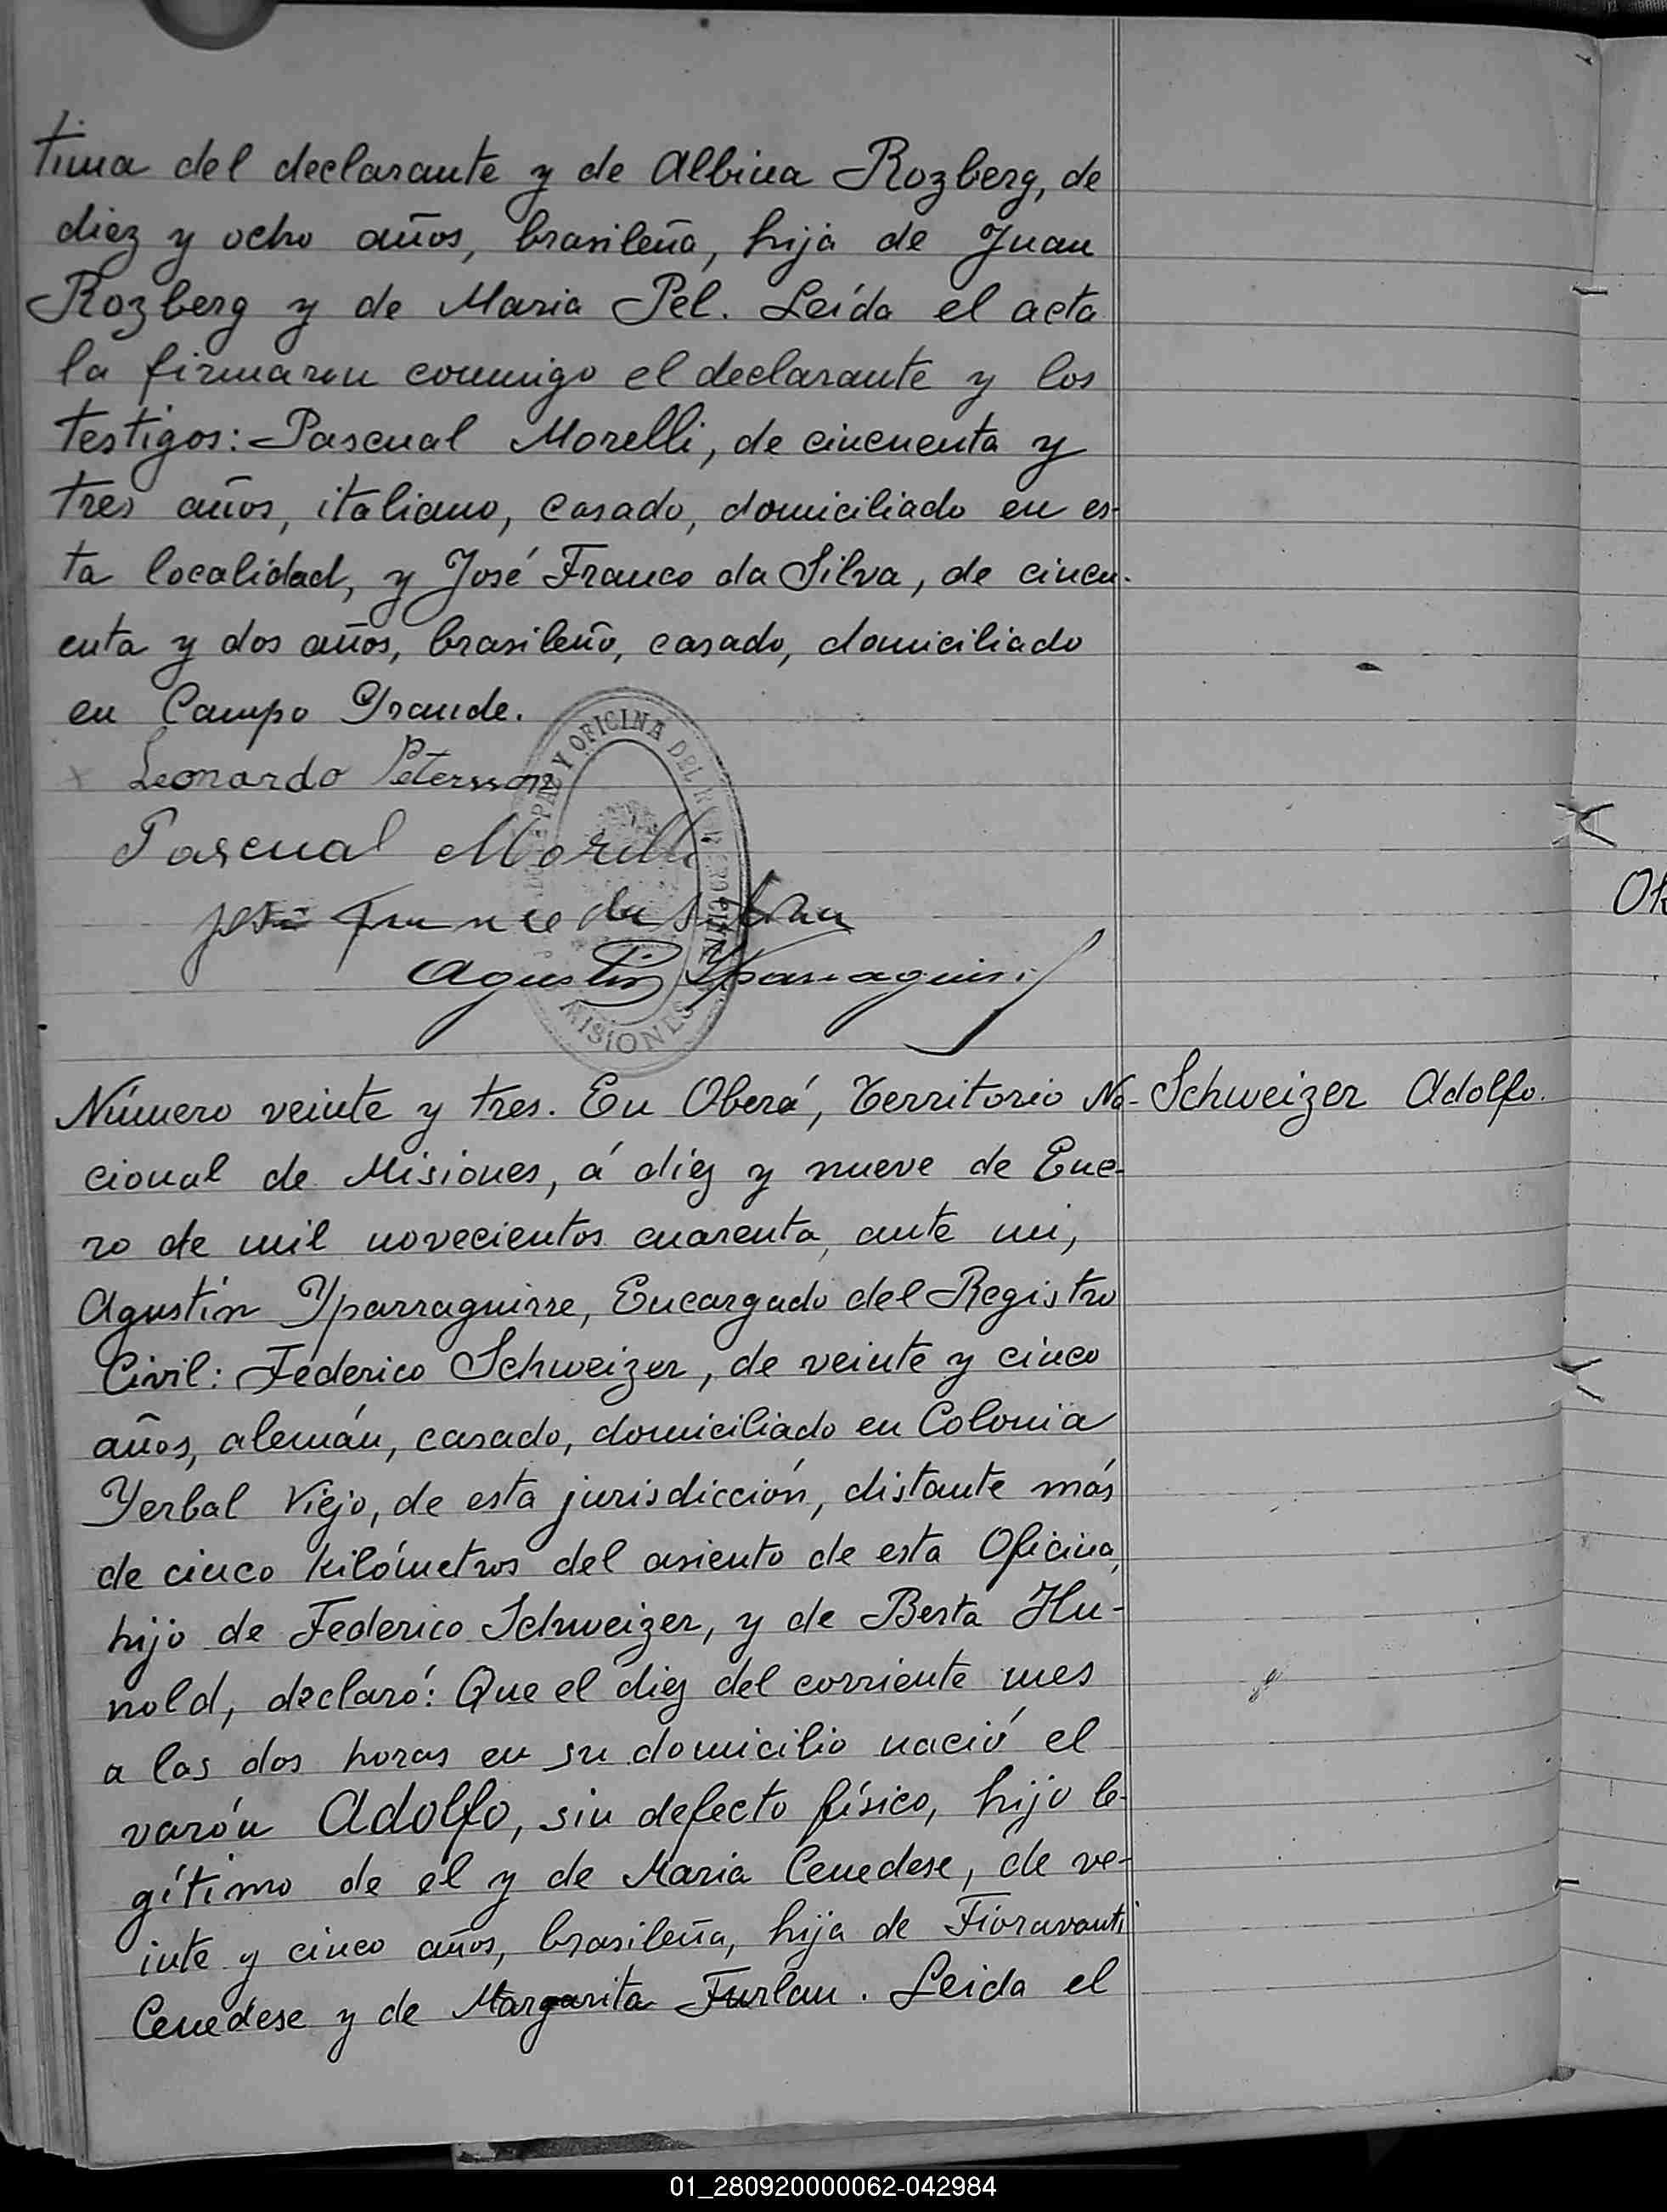 tima del declarante y de Albina Rozberg, de
diez y ocho años, brasileña, hija de Juan
Rozberg y de Maria Pel. Leída el acta
la firmaron conmigo el declarante y los
testigos: Pascual Morelli, de cincuenta y
tres años, italiano, casado, domiciliado en es-
ta localidad, y José Franco da Silva, de cincu-
enta y dos años, brasileño, casado, domiciliado
en Campo Grande.
Leonardo Petersson
Pascual Morelli
José Franco da Silva
Agustin Yparraguirre
PAZ Y OFICINA DEL
MISIONES
Número veinte y tres. En Oberá, Territorio Na-
Schweizer Adolfo.
cional de Misiones, á diez y nueve de Ene-
ro de mil novecientos cuarenta, ante mi,
Agustín Yparraguirre, Encargado del Registro
Civil: Federico Schweizer, de veinte y cinco
años, alemán, casado, domiciliado en Colonia
Yerbal Viejo, de esta jurisdicción, distante más
de cinco kilómetros del asiento de esta Oficina,
hijo de Federico Schweizer, y de Berta Hu-
nold, declaró: Que el diez del corriente mes
a las dos horas en su domicilio nació el
varón Adolfo, sin defecto físico, hijo le-
gítimo de él y de Maria Cenedese, de ve-
inte y cinco años, brasileña, hija de Fioravanti
Cenedese y de Margarita Furlan. Leida el
01_280920000062-042984